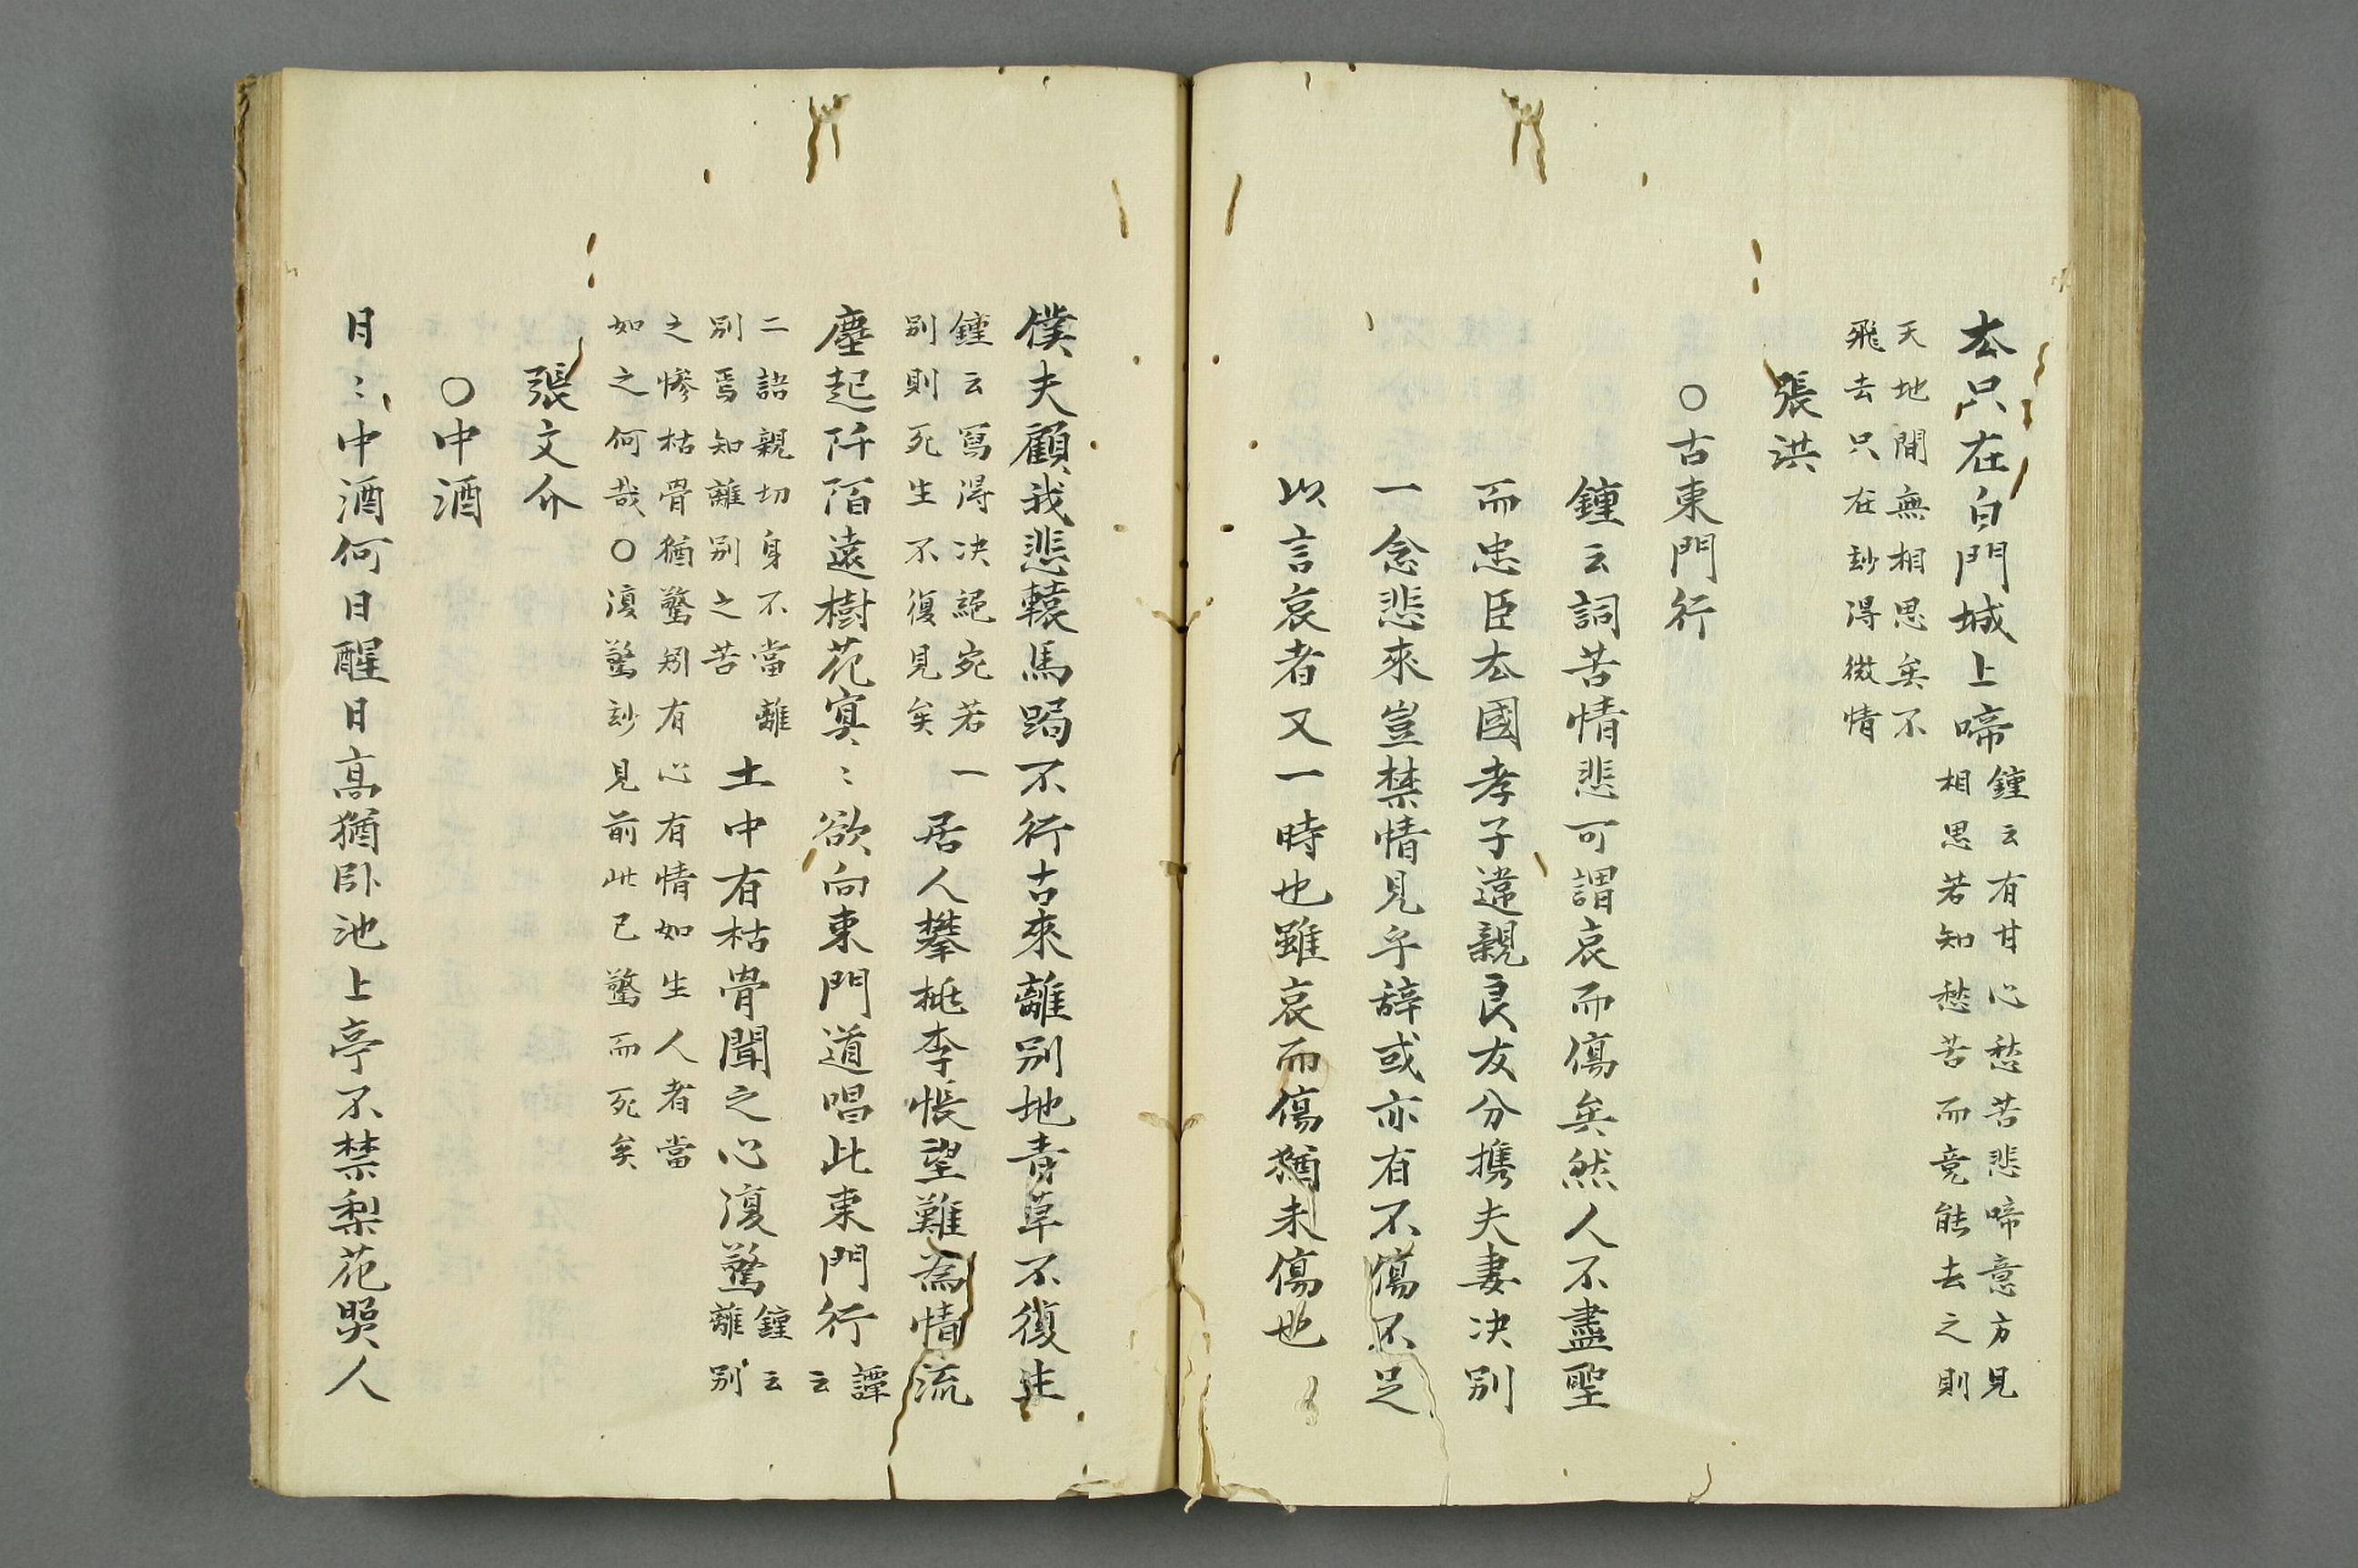 去只在白門城上啼
鍾云有甘心愁苦悲啼意方見
相思若知愁苦而竟能去之則
天地間無相思矣不
飛去只在玅得微情
張洪
○古東門行
鍾云詞苦情悲可謂哀而傷矣然人不盡聖
而忠臣去國孝子違親良友分携夫妻决別
一念悲來豈禁情見乎辞或亦有不傷不足
以言哀者又一時也雖哀而傷猶未傷也
僕夫顧我悲轅馬跼不行古來離別地青草不復生
鍾云寫得决絕宛若一
別則死生不復見矣
居人攀桃李悵望難為情流
塵起阡陌遠樹花寞〻欲向東門道唱此東門行
譚云
二語親切身不當離
別焉知離別之苦
土中有枯骨聞之心復驚
鍾云
離別
之慘枯骨猶驚矧有心有情如生人者當
如之何哉○復驚玅見前此已驚而死矣
張文介
○中酒
日〻中酒何日醒日高猶卧池上亭不禁梨花哭人